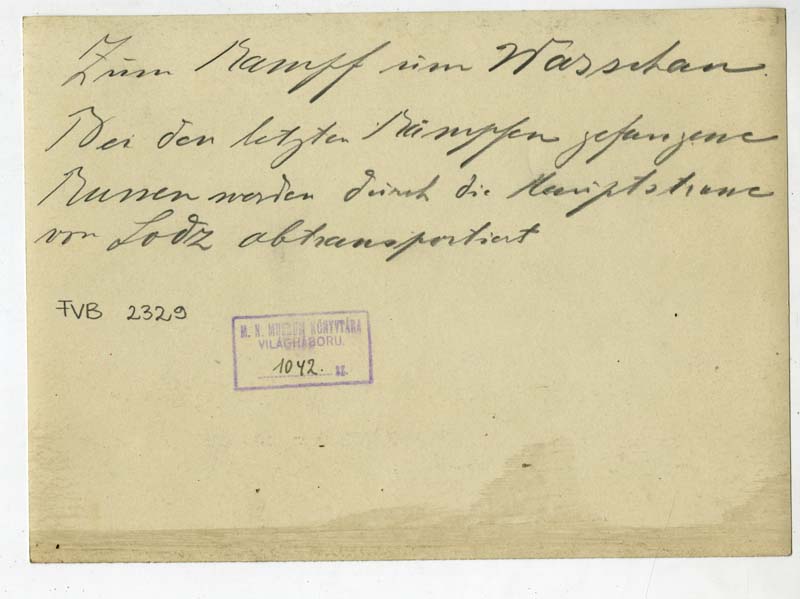 Zum Kampf um Warschau.
Bei den letzten Kämpfen gefangene
Russen werden durch die Hauptstrasse
von Lodz abtransportiert
FVB 2329
M. N. MUZEUM KÖNYVTÁRA
VILÁGHÁBORU.
1042. SZ.